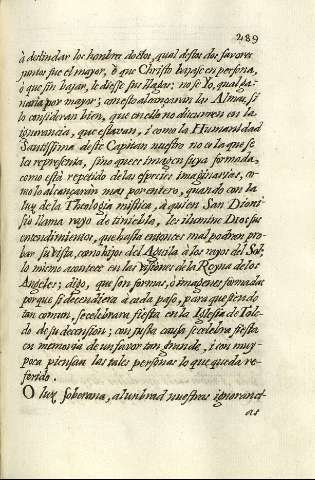 289
à deslindar los hombres doctos, qual destos dos favores
juntos fue el mayor, ò que Christo bajase en persona,
ò que sin bajar, le diese sus llagas; no se Yo, qual ga-
naria por mayor; con esto alcanzaran las Almas, si
lo consideran bien, que en ello no discurren en la
ignorancia, que estavan, i como la Humanidad
Santissima deste Capitan nuestro no es la que se
les representa, sino que es imagen suya formada,
como està repetido de las especies imaginarias, co-
mo lo alcanzaràn mas por entero, quando con la
luz de la Theologia mistica, à quien San Dioni-
sio llama rayo de tiniebla, les ilumine Dios sus
entendimientos, que hasta entonces mal podran pro-
bar su vista, como hijos del Aguila à los rayos del Sol;
lo mismo acontece en las visiones de la Reyna de los
Angeles; digo, que son formas, ò imagenes formadas
porque si decendiera à cada paso, para que siendo
tan comun, se celebrara fiesta en la Iglesia de Tole-
do de su decension; con justa causa se celebra fiesta
en memoria de un favor tan grande, i con muy
poca piensan las tales personas lo que queda re-
ferido.
O luz soberana, alumbrad nuestras ignoranci
as